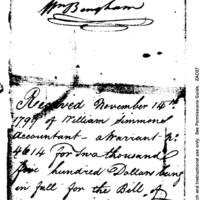 Wm Bingham
Received November 14th
1799 of William Simmons
Accountant - a Warrant No.
4614 For Two thousand
five hundred Dollars being
in full for the Bill of
ch and instructional use only. See Permissions Guide. ZAC07